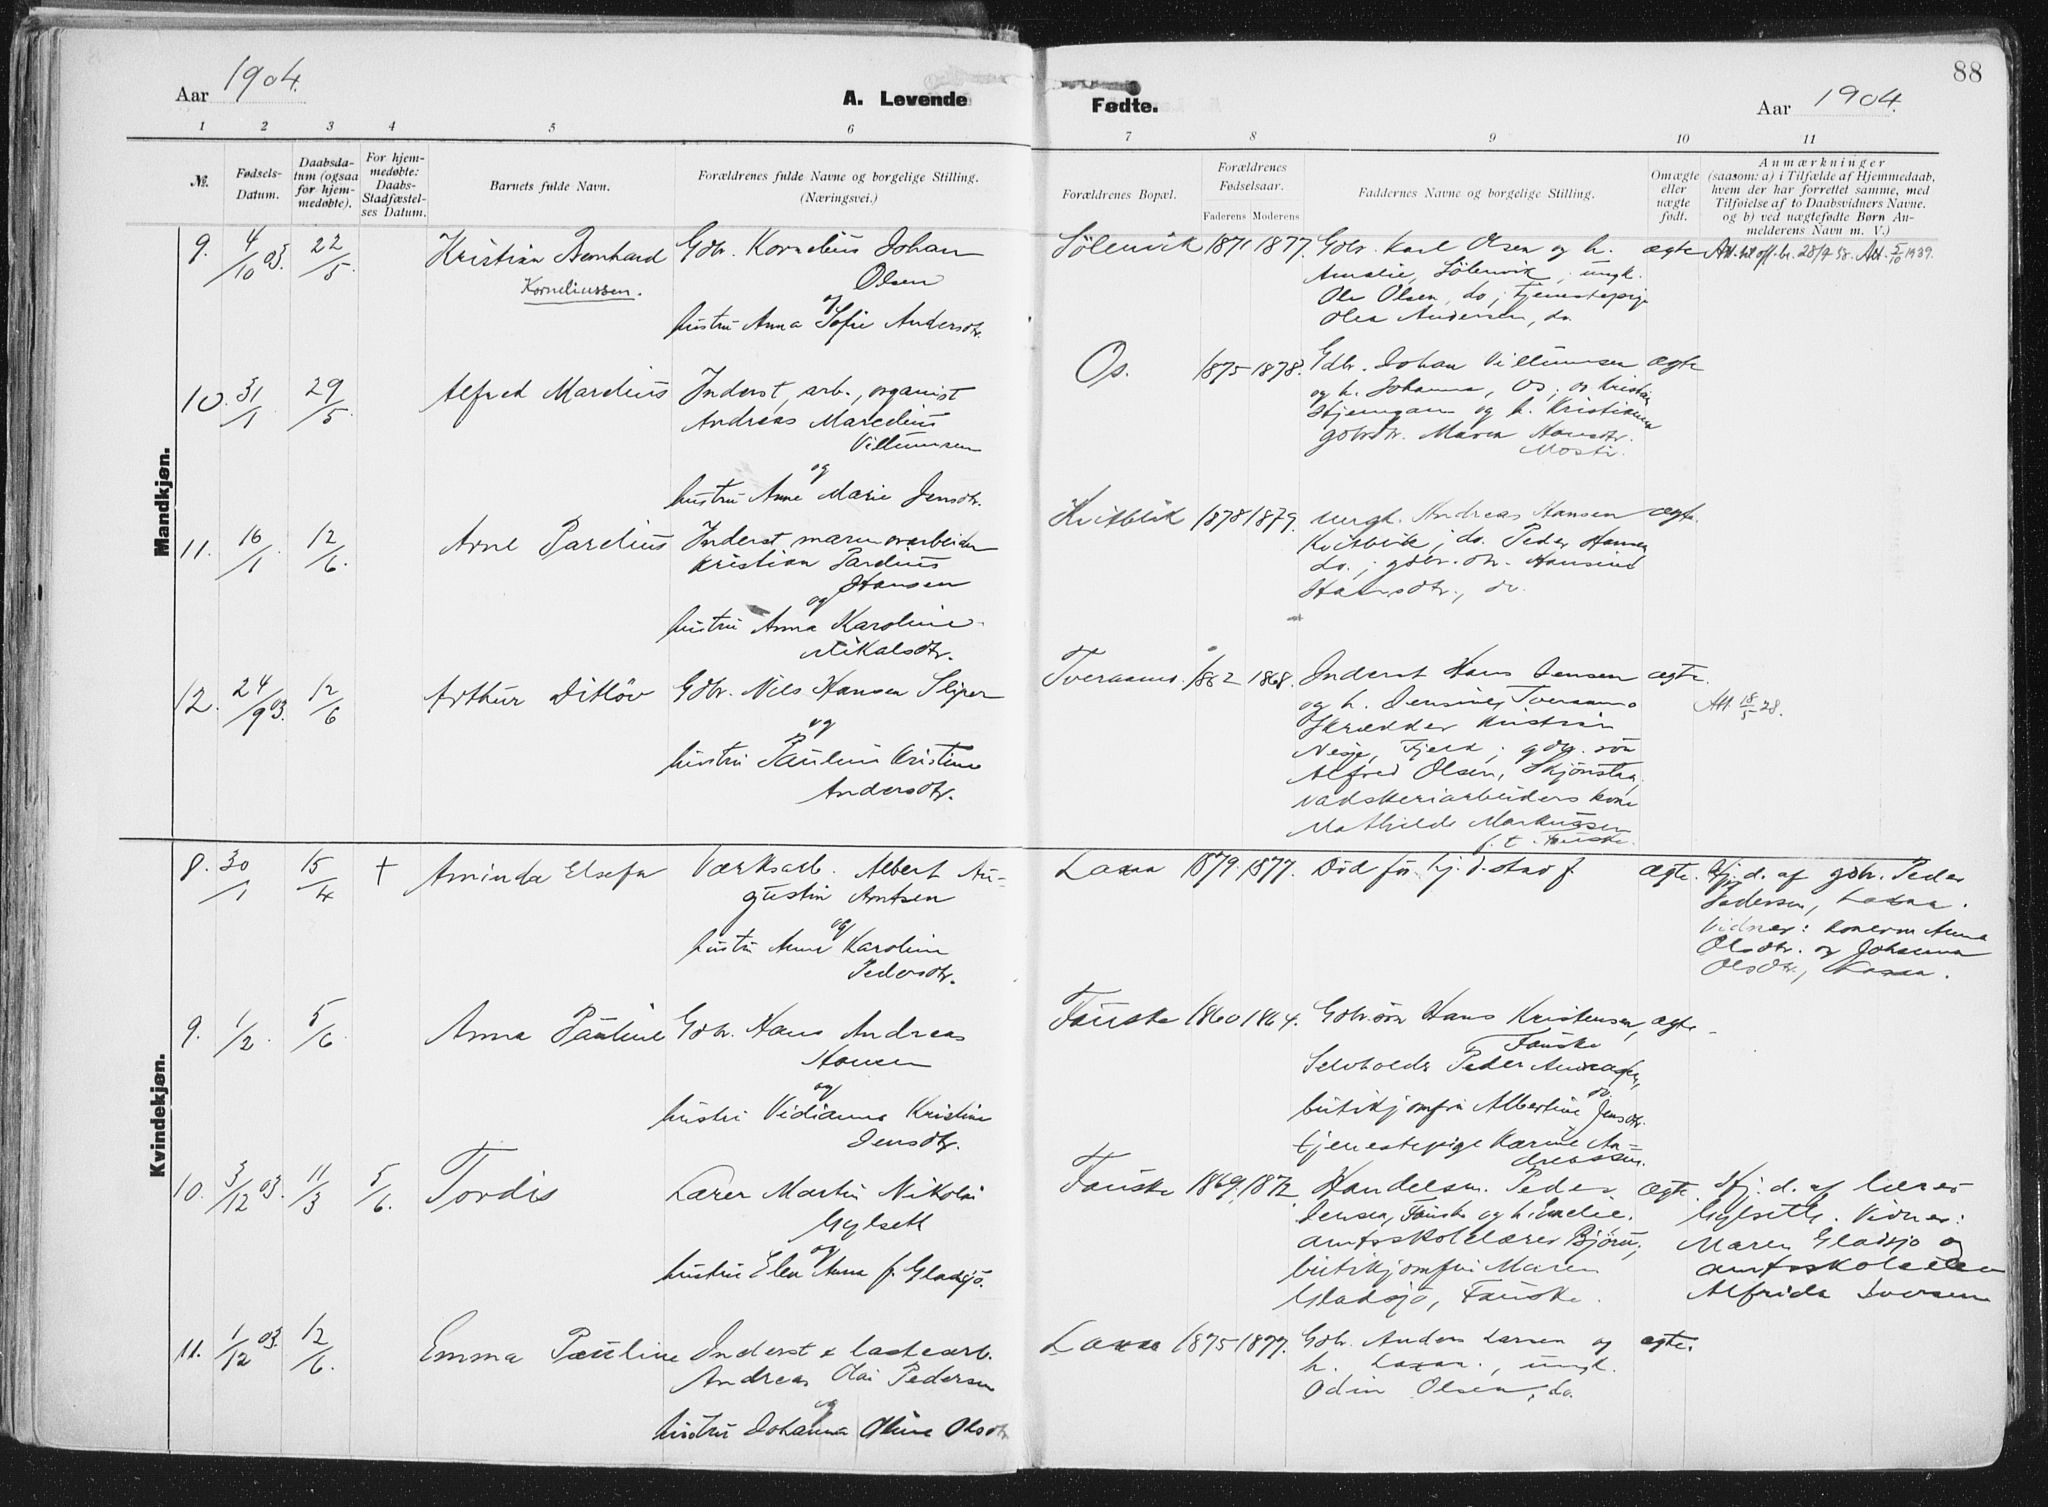 88
Aar 1904.
A. Levende
Fødte.
Aar 1904.
1 2 3 4 5 6 7 8 9 10 11
№.
Fødsels-
Datum.
Daabsda-
tum (ogsaa
for hjem-
medøbte).
For hjem-
medøbte:
Daabs-
Stadfæstel-
ses Datum.
Barnets fulde Navn.
Forældrenes fulde Navne og borgelige Stilling.
(Næringsvei.)
Forældrenes Bopæl.
Forældrenes
Fødselsaar.
Faderens Moderens
Faddernes Navne og borgelige Stilling.
Omægte
eller
uægte
født.
Anmærkninger
(saasom: a) i Tilfælde af Hjemmedaab,
hvem der har forrettet samme, med
Tilføielse af to Daabsvidners Navne.
og b) ved uægtefødte Børn An-
melderens Navn m. V.)
Mandkjøn.
9. 4/10 03. 22/5
Kristian Bernhard
Korneliussen.
Gdbr. Kornelius Johan
Olsen
og
hustru Anna Sofie Andersdtr.
Sölenvik 1871 1877.
Gdbr. Karl Olsen og h.
Amalie, Sölenvik, ungk.
Ole Olsen, do; tjenestepige
Olea Andersen, do.
ægte
10. 31/1 29/5
Alfred Marelius
Inderst, arb., organist
Andreas Marelius
Villumsen
og
hustru Anne Marie Jensdtr.
Os. 1875 1878.
Gdbr. Johan Villumsen
og h. Johanna, Os;
og h. Kristianna
gdbrdtr. Maren Hansdtr.
ægte
11. 16/1 12/6
Arne Parelius
Inderst, marmorarbeider
Kristian Parelius
Hansen
og
hustru Anna Karoline
Nikalsdtr.
Kvitblik 1878 1879.
ungk. Andreas Hansen
Kvitblik; do. Peder Hansen
do.; gdbr. dtr. Hansine
Hansdtr., do.
ægte.
12. 24/9 03. 12/6
Arthur Ditlöv
Gdbr. Nils Hansen
og
hustru Pauline Kristine
Andersdtr.
Tveraamo. 1862 1868.
Inderst Hans Jensen
og h. Jensine, Tveraamo
Skrædder Kristian
Nesje, Fjeld; gdbr. sön
Alfred Olsen, Skjönstaa,
vadskeriarbeiders kone
Mathilde Markussen
f. t. Fauske.
ægte.
Att. 18/5 28.
Kvindekjøn.
8. 30/1 15/4 +
Aminda Elsefa
Værksarb. Albert Au-
gustin Arntsen
og
hustru Anne Karoline
Pedersdtr.
Laxaa 1879 1877.
Död för hj. d. stadf.
ægte.
Hj. d. af gdbr. Peder
Pedersen, Laxaa.
Vidner: konerne Anna
Olsdtr. og Johanna
Olsdtr., Laxaa.
9. 1/2 5/6
Anna Pauline
Gdbr. Hans Andreas
Hansen
og
hustru Vidianna Kristine
Jensdtr.
Fauske 1860 1864.
Gdbrsön Hans Kristensen,
Fauske
Peder
do.
butikjomfru Albertine Jensdtr.
tjenestepige Karine An-
dreassen.
ægte
10. 3/12 03. 11/3 5/6.
Tordis
Lærer Martin Nikolai
Gylseth
og
hustru Elen Anna f. Gladsjö.
Fauske 1869 1872
Handelsm. Peder
Jensen, Fauske og h. Emelie.
amtsskolelærer Björn;
butikjomfru Maren
Gladsjö, Fauske.
ægte.
Hj. d. af lærer
Gylseth. Vidner:
Maren Gladsjo og
Alfrida Iversen
11. 1/12 03. 12/6.
Emma Pauline
Inderst & lastearb.
Andreas Olai Pedersen
og
hustru Johanna Oline Olsdtr
Laxaa 1875 1877.
Gdbr. Anders Larsen og
h. Laxaa., ungk.
Odin Olsen, do.
ægte.